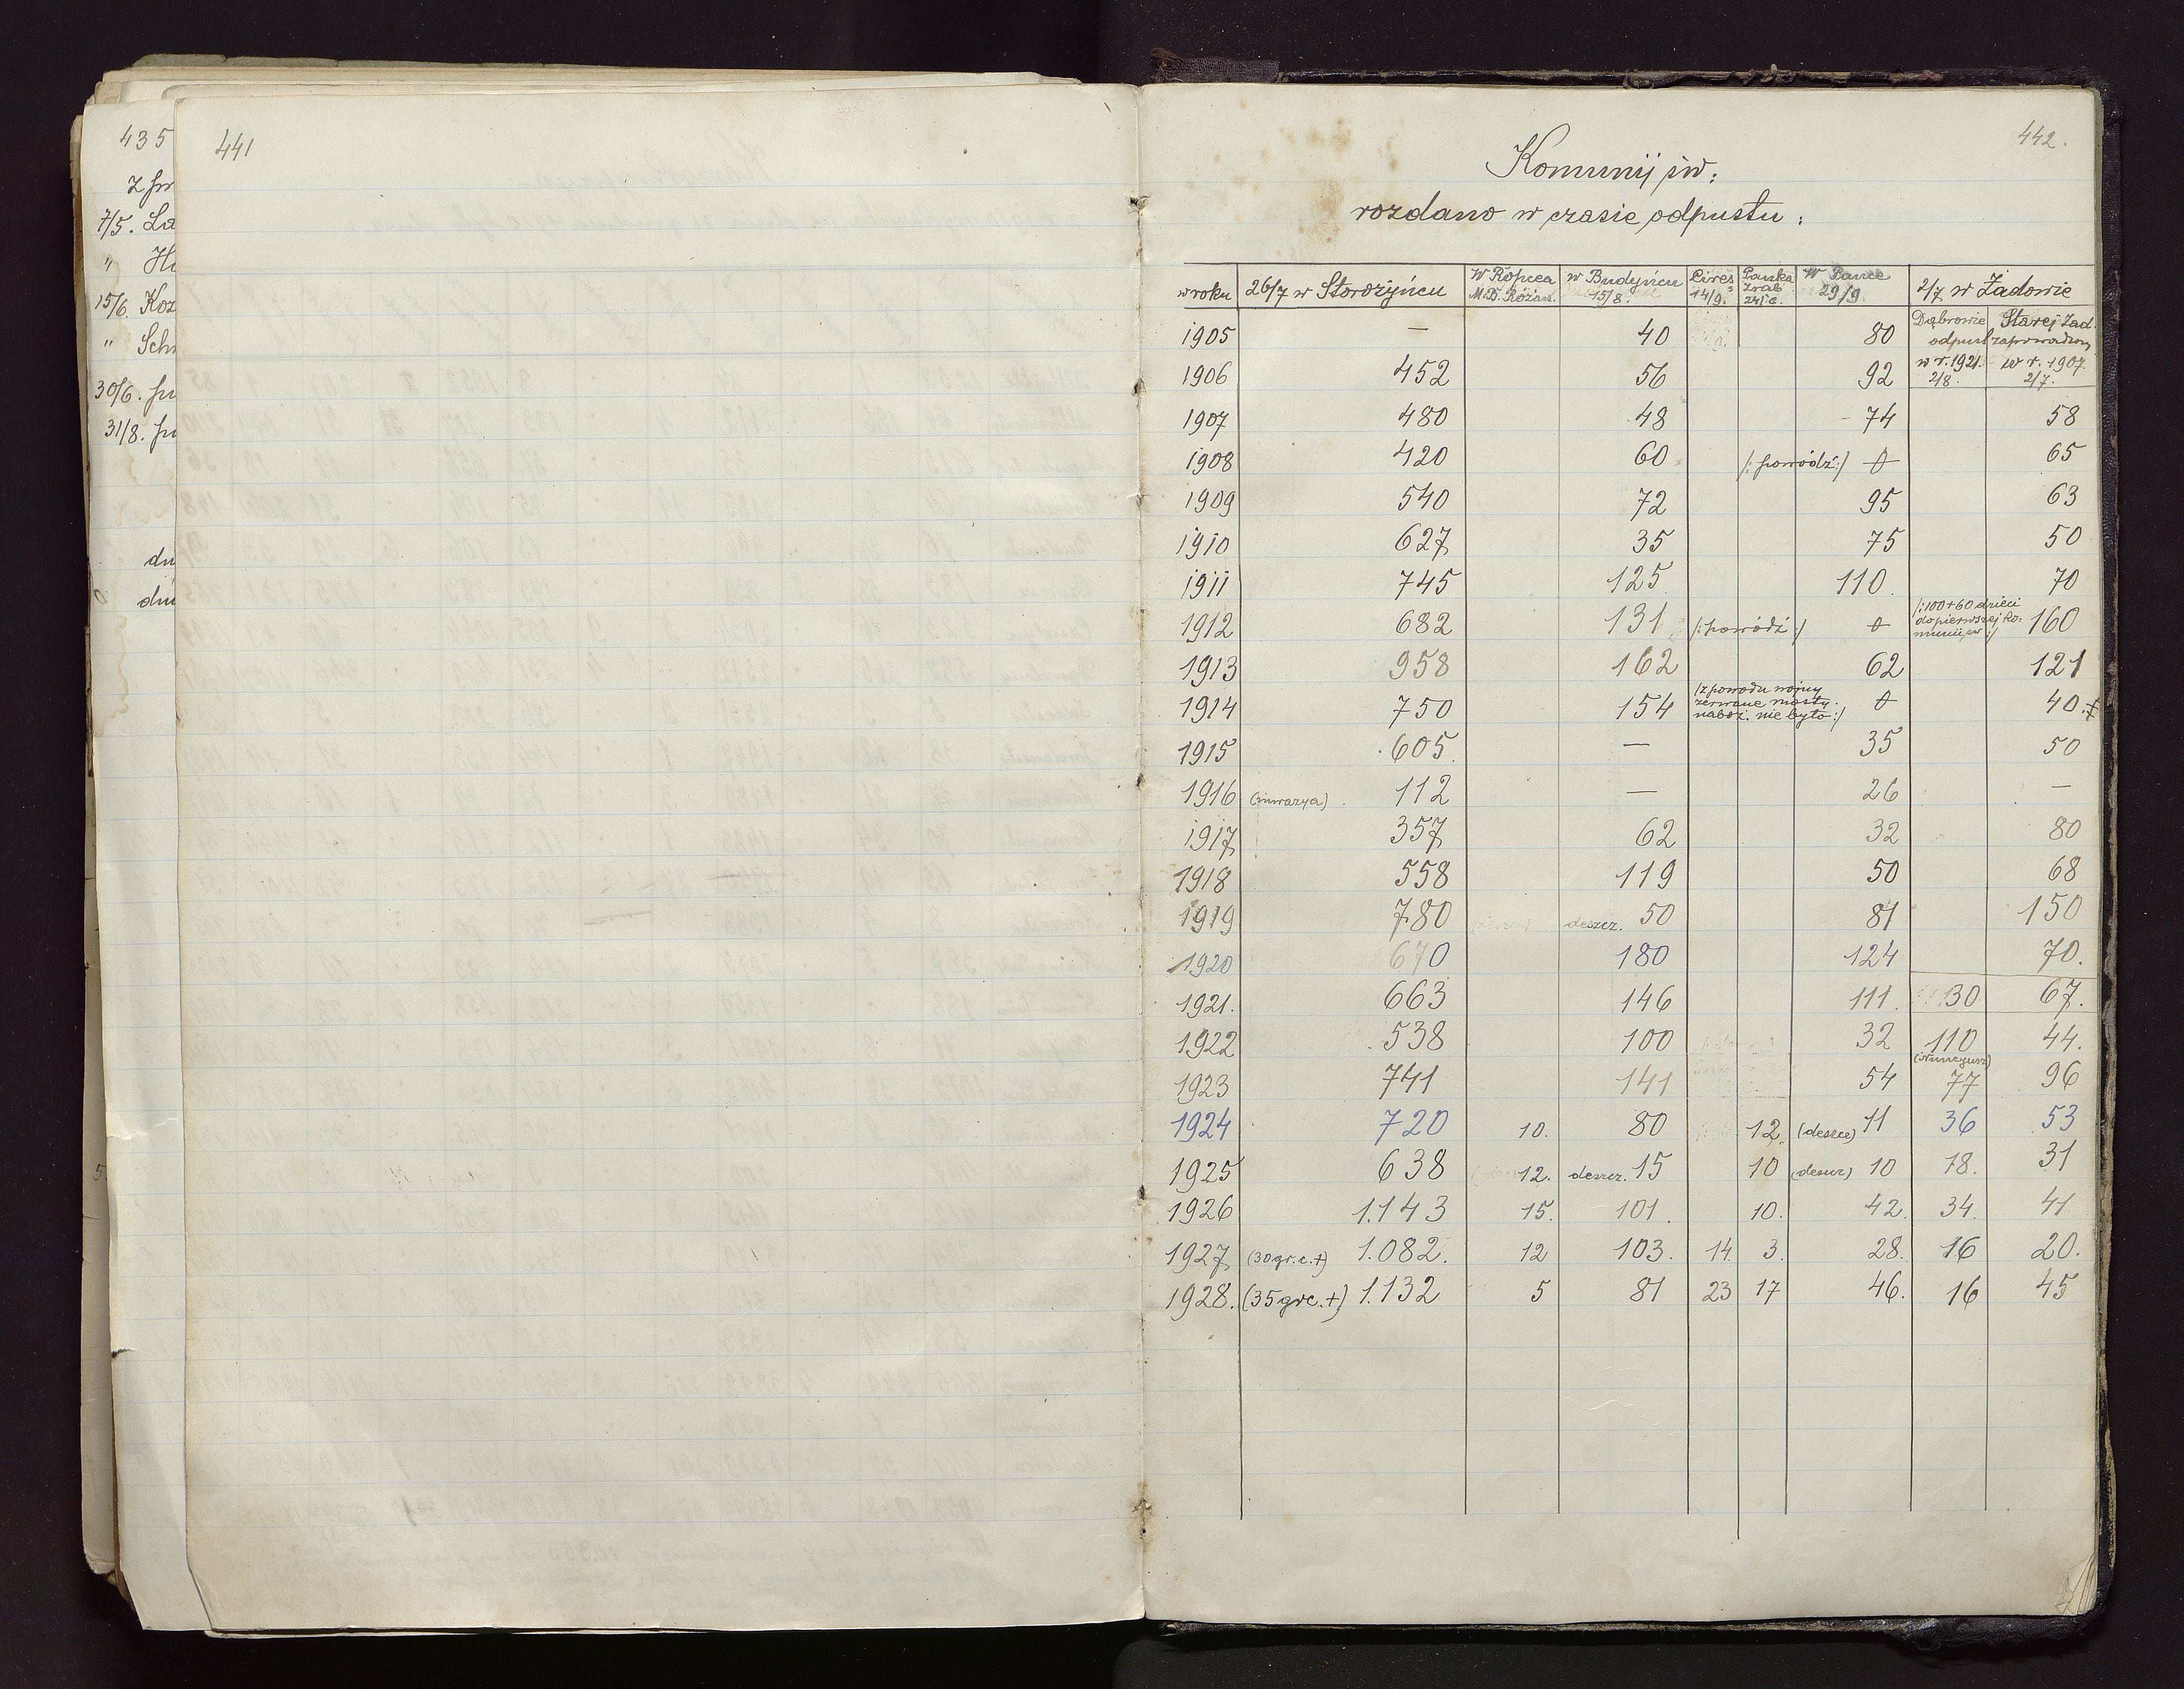 435
7/5. La
"
15/6. Koz
" Sch
30/6.
31/8.
441
442.
Komunij św:
rozdano w czasie odpustu:
w roku 26/7 w Storożyńcu W Ropcea M.B. Różan. w Budyńcu 15/8. Cires 14/9. Panka w Pance 29/9. 2/7 w Żadowie
1905 — 40 80 Dąbrowie Starej Żad.
odpust zaprowadzony
1906 452 56 92 w r. 1921. 2/8. w r. 1907. 2/7.
1907 480 48 74 58
1908 420 60 /: powódź :/ 0 65
1909 540 72 95 63
1910 627 35 75 50
1911 745 125 110. 70
1912 682 131 /: powódź :/ 0 /: 100 + 60 dzieci do pierwszej komunii św :/ 160
1913 958 162 62 121
1914 750 154 /z powodu wojny zerwane mosty naboż. nie było :/ 0 40.
1915 605. — 35 50
1916 112 — 26 —
1917 357 62 32 80
1918 558 119 50 68
1919 780 deszcz. 50 81 150
1920 670 180 124 70.
1921. 663 146 111. 30 67.
1922 538 100 32 110 44.
1923 741 141 54 77 96
1924 720 10. 80 12. (deszcz) 11 36 53
1925 638 12. deszcz. 15 10 (deszcz) 10 18. 31
1926 1.143 15. 101. 10. 42. 34. 41
1927 (30 gr. c. +) 1.082. 12 103. 14. 3. 28. 16 20.
1928. (35 grc. +) 1.132 5 81 23 17 46. 16 45